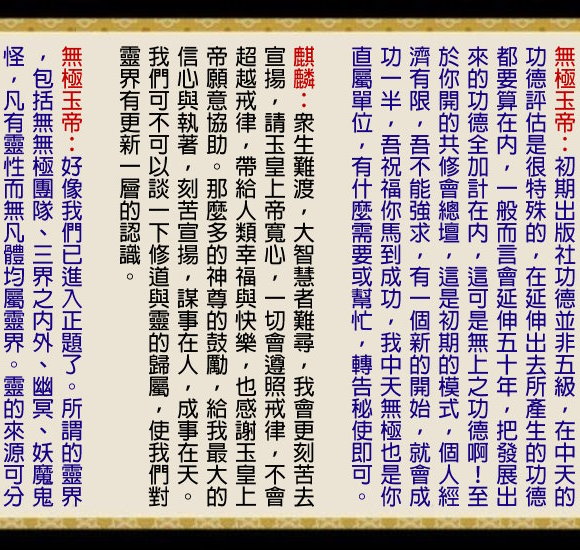 無極玉帝：初期出版社功德並非五級，在中天的
功德評估是很特殊的，在延伸出去所產生的功德
都要算在內，一般而言會延伸五十年，把發展出
來的功德全加計在內，這可是無上之功德啊！至
於你開的共修會總壇，這是初期的模式，個人經
濟有限，吾不能強求，有一個新的開始，就會成
功一半，吾祝福你馬到成功，我中天無極也是你
直屬單位，有什麼需要或幫忙，轉告秘使即可。
麒麟：衆生難渡，大智慧者難尋，我會更刻苦去
宣揚，請玉皇上帝寬心，一切會遵照戒律，不會
超越戒律，帶給人類幸福與快樂，也感謝玉皇上
帝願意協助。那麼多的神尊的鼓勵，給我最大的
信心與執著，刻苦宣揚，謀事在人，成事在天。
我們可不可以談一下修道與靈的歸屬，使我們對
靈界有更新一層的認識。
無極玉帝：好像我們已進入正題了。所謂的靈界
，包括無無極團隊、三界之內外、幽冥、妖魔鬼
怪，凡有靈性而無凡體均屬靈界。靈的來源可分